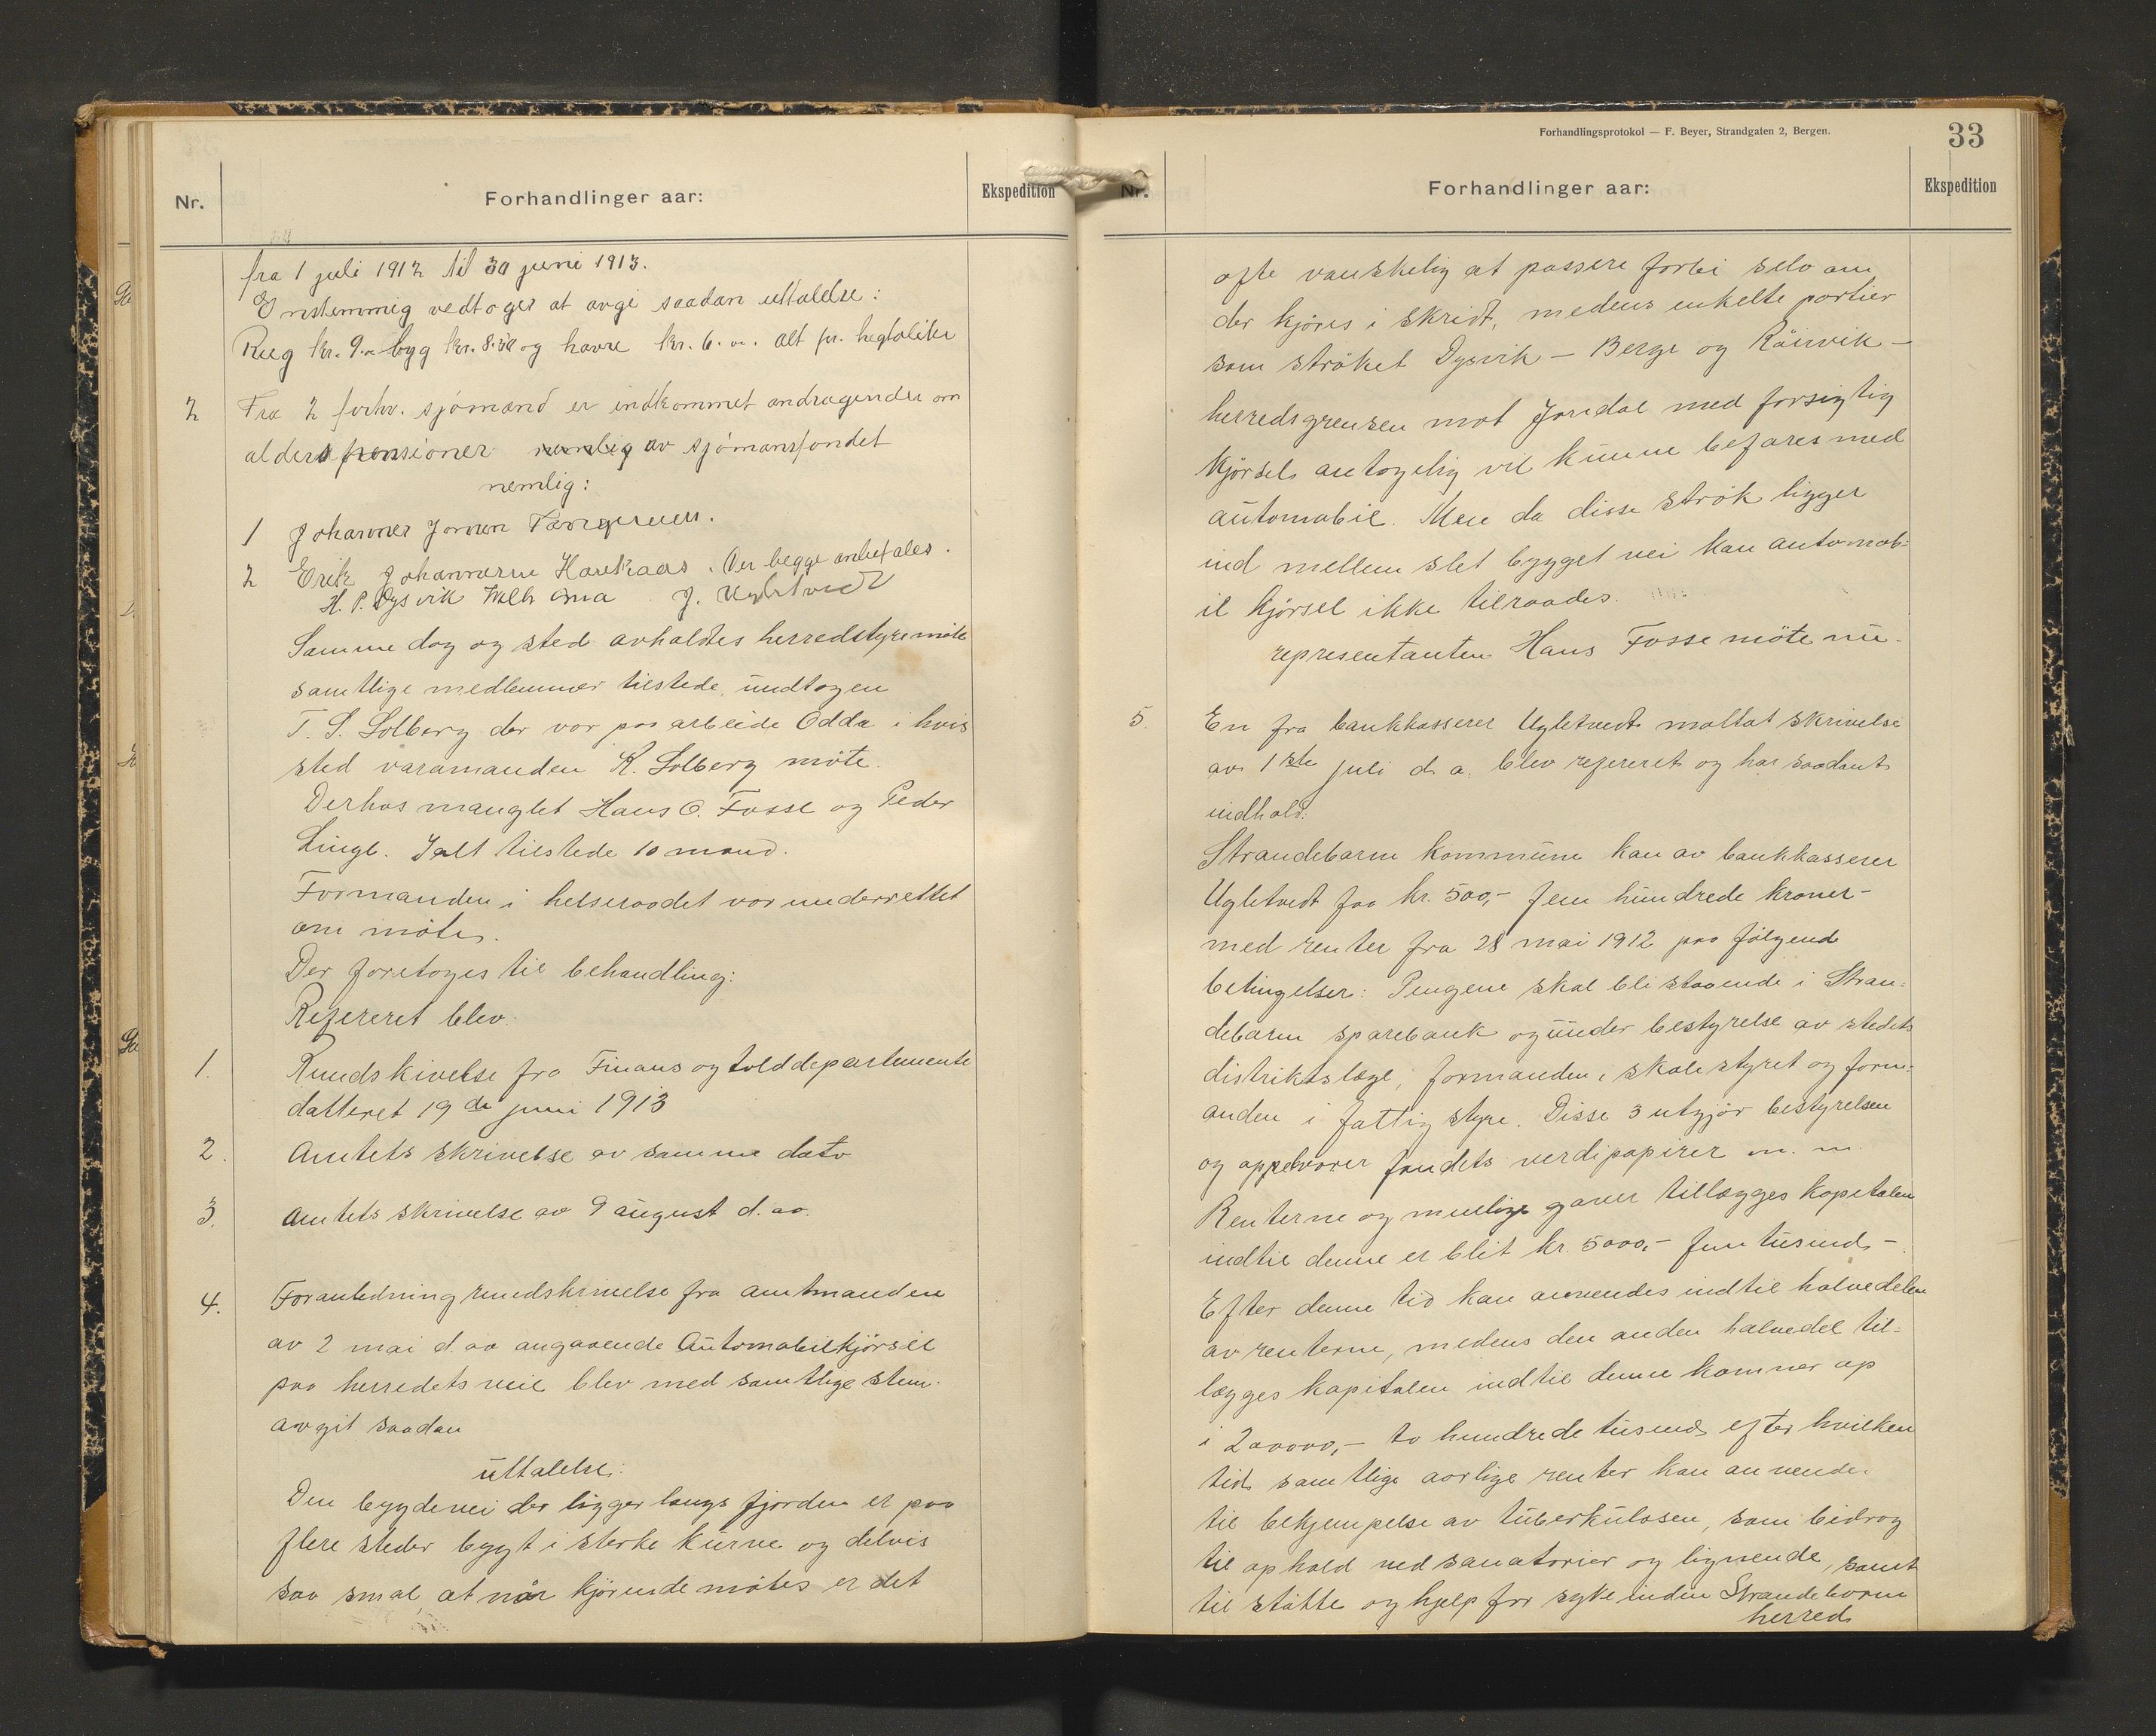 Nr.
Forhandlinger aar:
Ekspedition
fra 1 juli 1912 til 30 juni 1913.
Enstemmig vedtoges at avgi saadan uttalelse:
Rug kr. 9.- byg kr. 8.50 og havre kr. 6.- alt pr. hegtoliter
2 Fra 2 forhv. sjömænd er indkommet andragender om
alderspensioner nemlig av sjömansfondet
nemlig:
1 Johannes Jonsen
2 Erik Johannesen Haukaas. Der begge anbefales.
H. P. Dysvik J. Ugletvedt
Samme dag og sted avholdtes herredstyremöte
samtlige medlemmer tilstede undtagen
T. S. Solberg der var paa arbeide Odda i hvis
sted varamanden K. Solberg möte.
Derhos manglet Hans O. Fosse og Peder
Linge. Ialt tilstede 10 mand.
Formanden i helseraadet var underrettet
om möte.
Der foretoges til behandling:
Refereret blev:
1. Rundskivelse fra Finans og tolddepartemente
datteret 19de juni 1913
2. Amtets skrivelse av samme dato
3. Amtets skrivelse av 9 august d. aa.
4. Foranledning rundskrivelse fra amtmanden
av 2 mai d. aa angaaende Automobilkjörsel
paa herredets veie blev med samtlige stem.
avgit saadan
uttalelse:
Den bygdevei der ligger langs fjorden er paa
flere steder bygt i sterke kurve og delvis
saa smal, at når kjörende mötes er det
Forhandlingsprotokol — F. Beyer, Strandgaten 2, Bergen.
33
Nr.
Forhandlinger aar:
Ekspedition
ofte vanskelig at passere forbi selv om
der kjöres i skridt, medens enkelte partier
som ströket Dysvik — Berge og Råirvik —
herredsgrensen mot Jondal med forsigtig
kjörsel antagelig vil kunne befares med
automobil. Men da disse strök ligger
ind mellem slet bygget vei kan automob-
il kjörsel ikke tilraades.
representanten Hans Fosse möte nu.
5. En fra bankkasserer Ugletvedt mottat skrivelse
av 1ste juli d. a. blev refereret og har saadant
indhold:
Strandebarm kommune kan av bankkasserer
Ugletvedt faa kr. 500,- fem hundrede kroner-
med renter fra 28 mai 1912 paa fölgende
betingelser: Pengene skal bli staaende i Stran-
debarm sparebank og under bestyrelse av stedets
distriktslæge, formanden i skolestyret og form-
anden i fattigstyre. Disse 3 utgjör bestyrelsen
og oppebvarer fondets verdipapirer m. m.
Renterne og mulige gaver tillægges kapitalen
indtil denne er blit kr. 5000,- fem tusind -
Efter denne tid kan anvendes indtil halvedelen
av renterne, medens den anden halvedel til-
lægges kapitalen indtil denne kommer op
i 200000,- to hundrede tusind efter hvilken
tid samtlige aarlige renter kan anvendes
til bekjempelse av tuberkulosen, som bidrag
til ophold ved sanatorier og lignende, samt
til stötte og hjelp for syke inden Strandebarm
herred